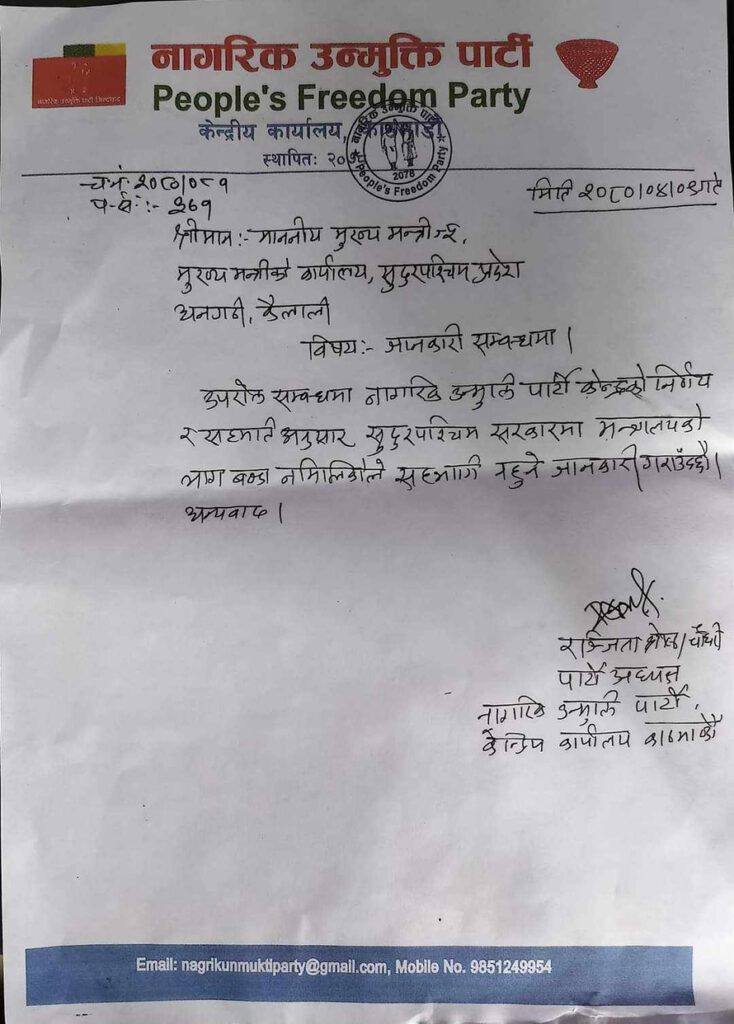 नागरिक उन्मुक्ति पार्टी
People's Freedom Party
केन्द्रीय कार्यालय,
स्थापितः २०
नागरिक उन्मुक्ति पार्टी
2078
People's Freedom Party
च.नं. २०८०/०८१
प.सं.:- ३६१
मिति २०८०/०४/०१गते
श्रीमान:- माननीय मुख्य मन्त्रीज्यू,
मुख्य मन्त्रीको कार्यालय, सुदुरपश्चिम प्रदेश
धनगढी, कैलाली
विषय:- जानकारी सम्बन्धमा।
उपरोक्त सम्बन्धमा नागरिक उन्मुक्ति पार्टी केन्द्रको निर्णय
र सहमति अनुसार सुदुरपश्चिम सरकारमा मन्त्रालयको
भाग बण्डा नमिलेकोले सहभागी नहुने जानकारी गराउँदछौ।
धन्यवाद।
रञ्जिता श्रेष्ठ/चौधरी
पार्टी अध्यक्ष
नागरिक उन्मुक्ति पार्टी,
केन्द्रिय कार्यालय काठमाडौं
Email: nagrikunmuktiparty@gmail.com, Mobile No. 9851249954